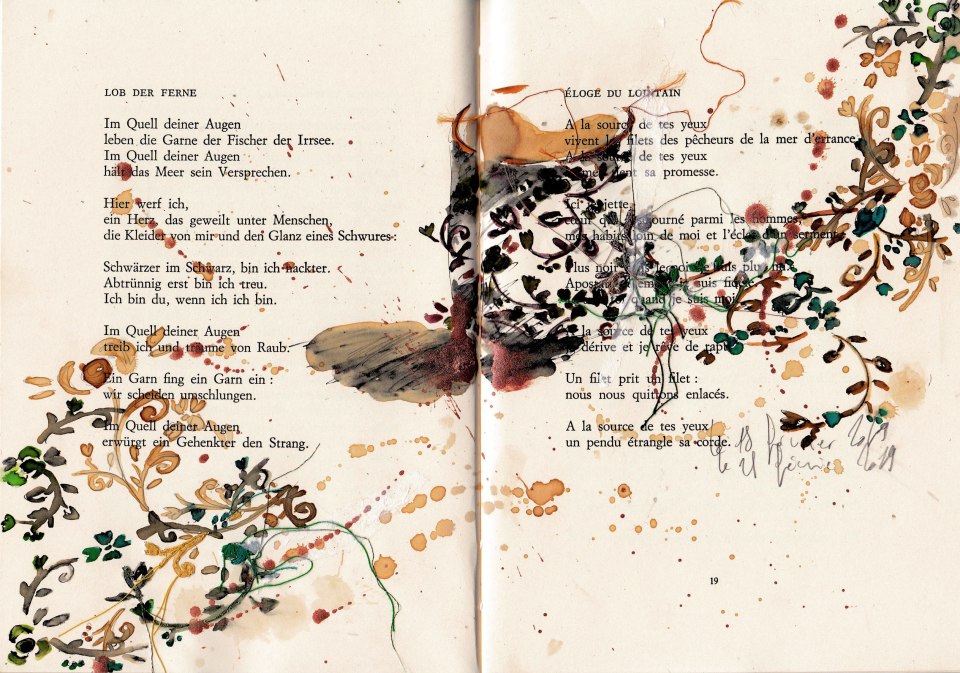 LOB DER FERNE
Im Quell deiner Augen
leben die Garne der Fischer der Irrsee.
Im Quell deiner Augen
hält das Meer sein Versprechen.
Hier werf ich,
ein Herz, das geweilt unter Menschen,
die Kleider von mir und den Glanz eines Schwures:
Schwärzer im Schwarz, bin ich nackter.
Abtrünnig erst bin ich treu.
Ich bin du, wenn ich ich bin.
Im Quell deiner Augen
treib ich und träume von Raub.
Ein Garn fing ein Garn ein :
wir scheiden umschlungen.
Im Quell deiner Augen
erwürgt ein Gehenkter den Strang.
ÉLOGE DU LOINTAIN
A la source de tes yeux
vivent les filets des pêcheurs de la mer d'errance.
A la source de tes yeux
mer tient sa promesse.
Ici je jette,
parmi les hommes,
mes habits loin de moi et l'éclat d'un serment
Plus noir le noir je suis plus
Apostat je suis fidèle
quand je suis moi
A la source de tes yeux
dérive et je rêve de rapt
Un filet prit un filet :
nous nous quittons enlacés.
A la source de tes yeux
un pendu étrangle sa corde.
le 18 février 2019
le 21 février 2019
19